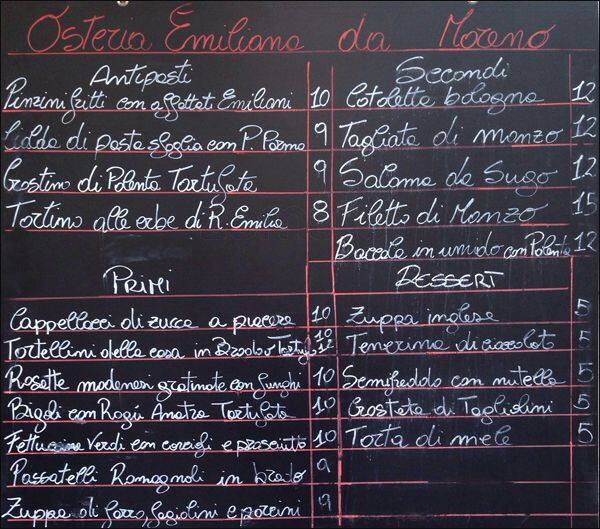 Osteria Emiliana da Moreno
Antipasti
Pinzini fritti con affettat Emiliani 10
di pasta sfoglia con P. Parma 9
Crostino di Polenta Tartufata 9
Tortino alle erbe di R. Emilia 8
Primi
Cappellacci di zucca a piacere 10
Tortellini della casa in Brodo 10 12
Rosette modenesi gratinate con funghi 10
Bigoli con Ragù Anatra Tartufata 10
Fettuccine Verdi con e prosciutto 10
Passatelli Romagnoli in brodo 9
Zuppa di farro, fagiolini e porcini 9
Secondi
Cotoletta bologna 12
Tagliata di manzo 12
Salama da Sugo 12
Filetto di Manzo 15
Baccala in umido con Polenta 12
Dessert
Zuppa inglese 5
Tenerina di cioccolato 5
Semifreddo con nutella 5
Crostata di Tagliolini 5
Torta di mele 5